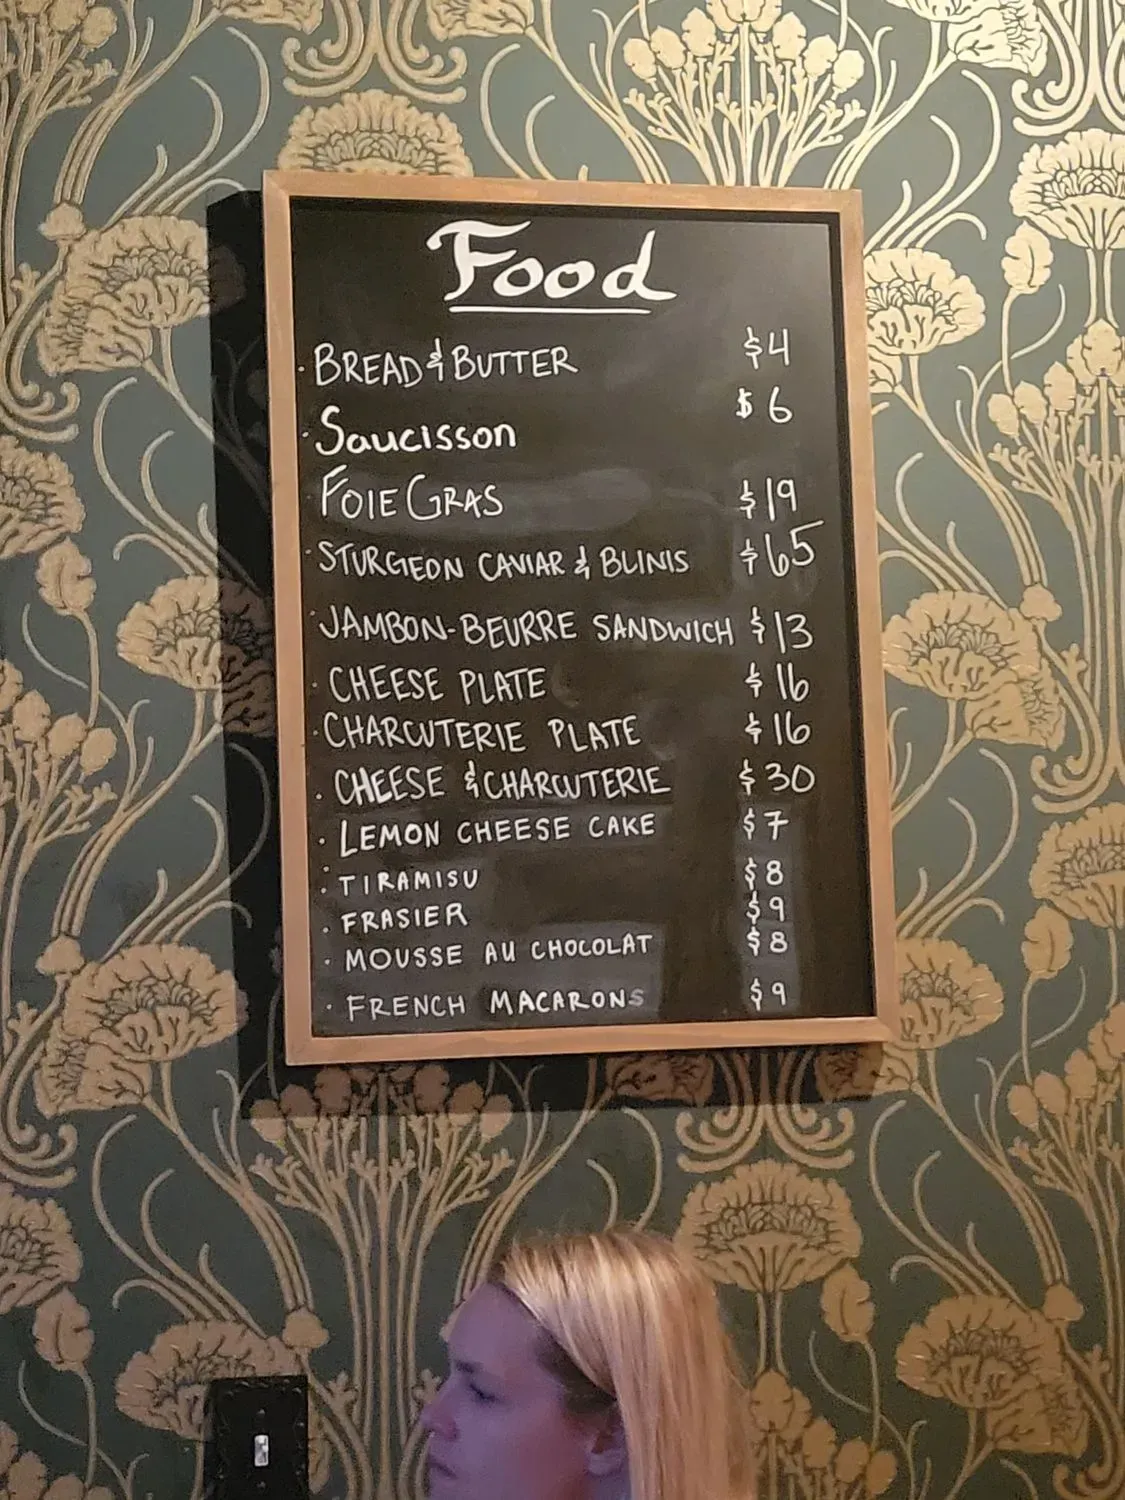 Food
· BREAD & BUTTER $4
· Saucisson $6
FOIE GRAS $19
· STURGEON CAVIAR & BLINIS $65
· JAMBON-BEURRE SANDWICH $13
· CHEESE PLATE $16
· CHARCUTERIE PLATE $16
· CHEESE & CHARCUTERIE $30
· LEMON CHEESE CAKE $7
· TIRAMISU $8
· FRASIER $9
· MOUSSE AU CHOCOLAT $8
· FRENCH MACARONS $9